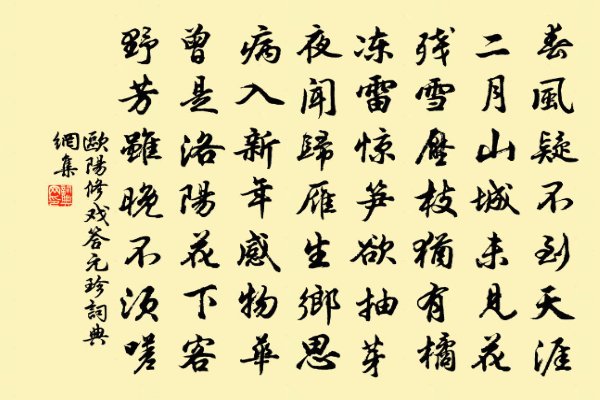 春風疑不到天涯
二月山城未見花
残雪壓枝猶有橘
冻雷惊笋欲抽芽
夜聞歸雁生鄉思
病入新年感物華
曾是洛陽花下客
野芳雖晚不须嗟
歐陽修戏答元珍詞典
網集